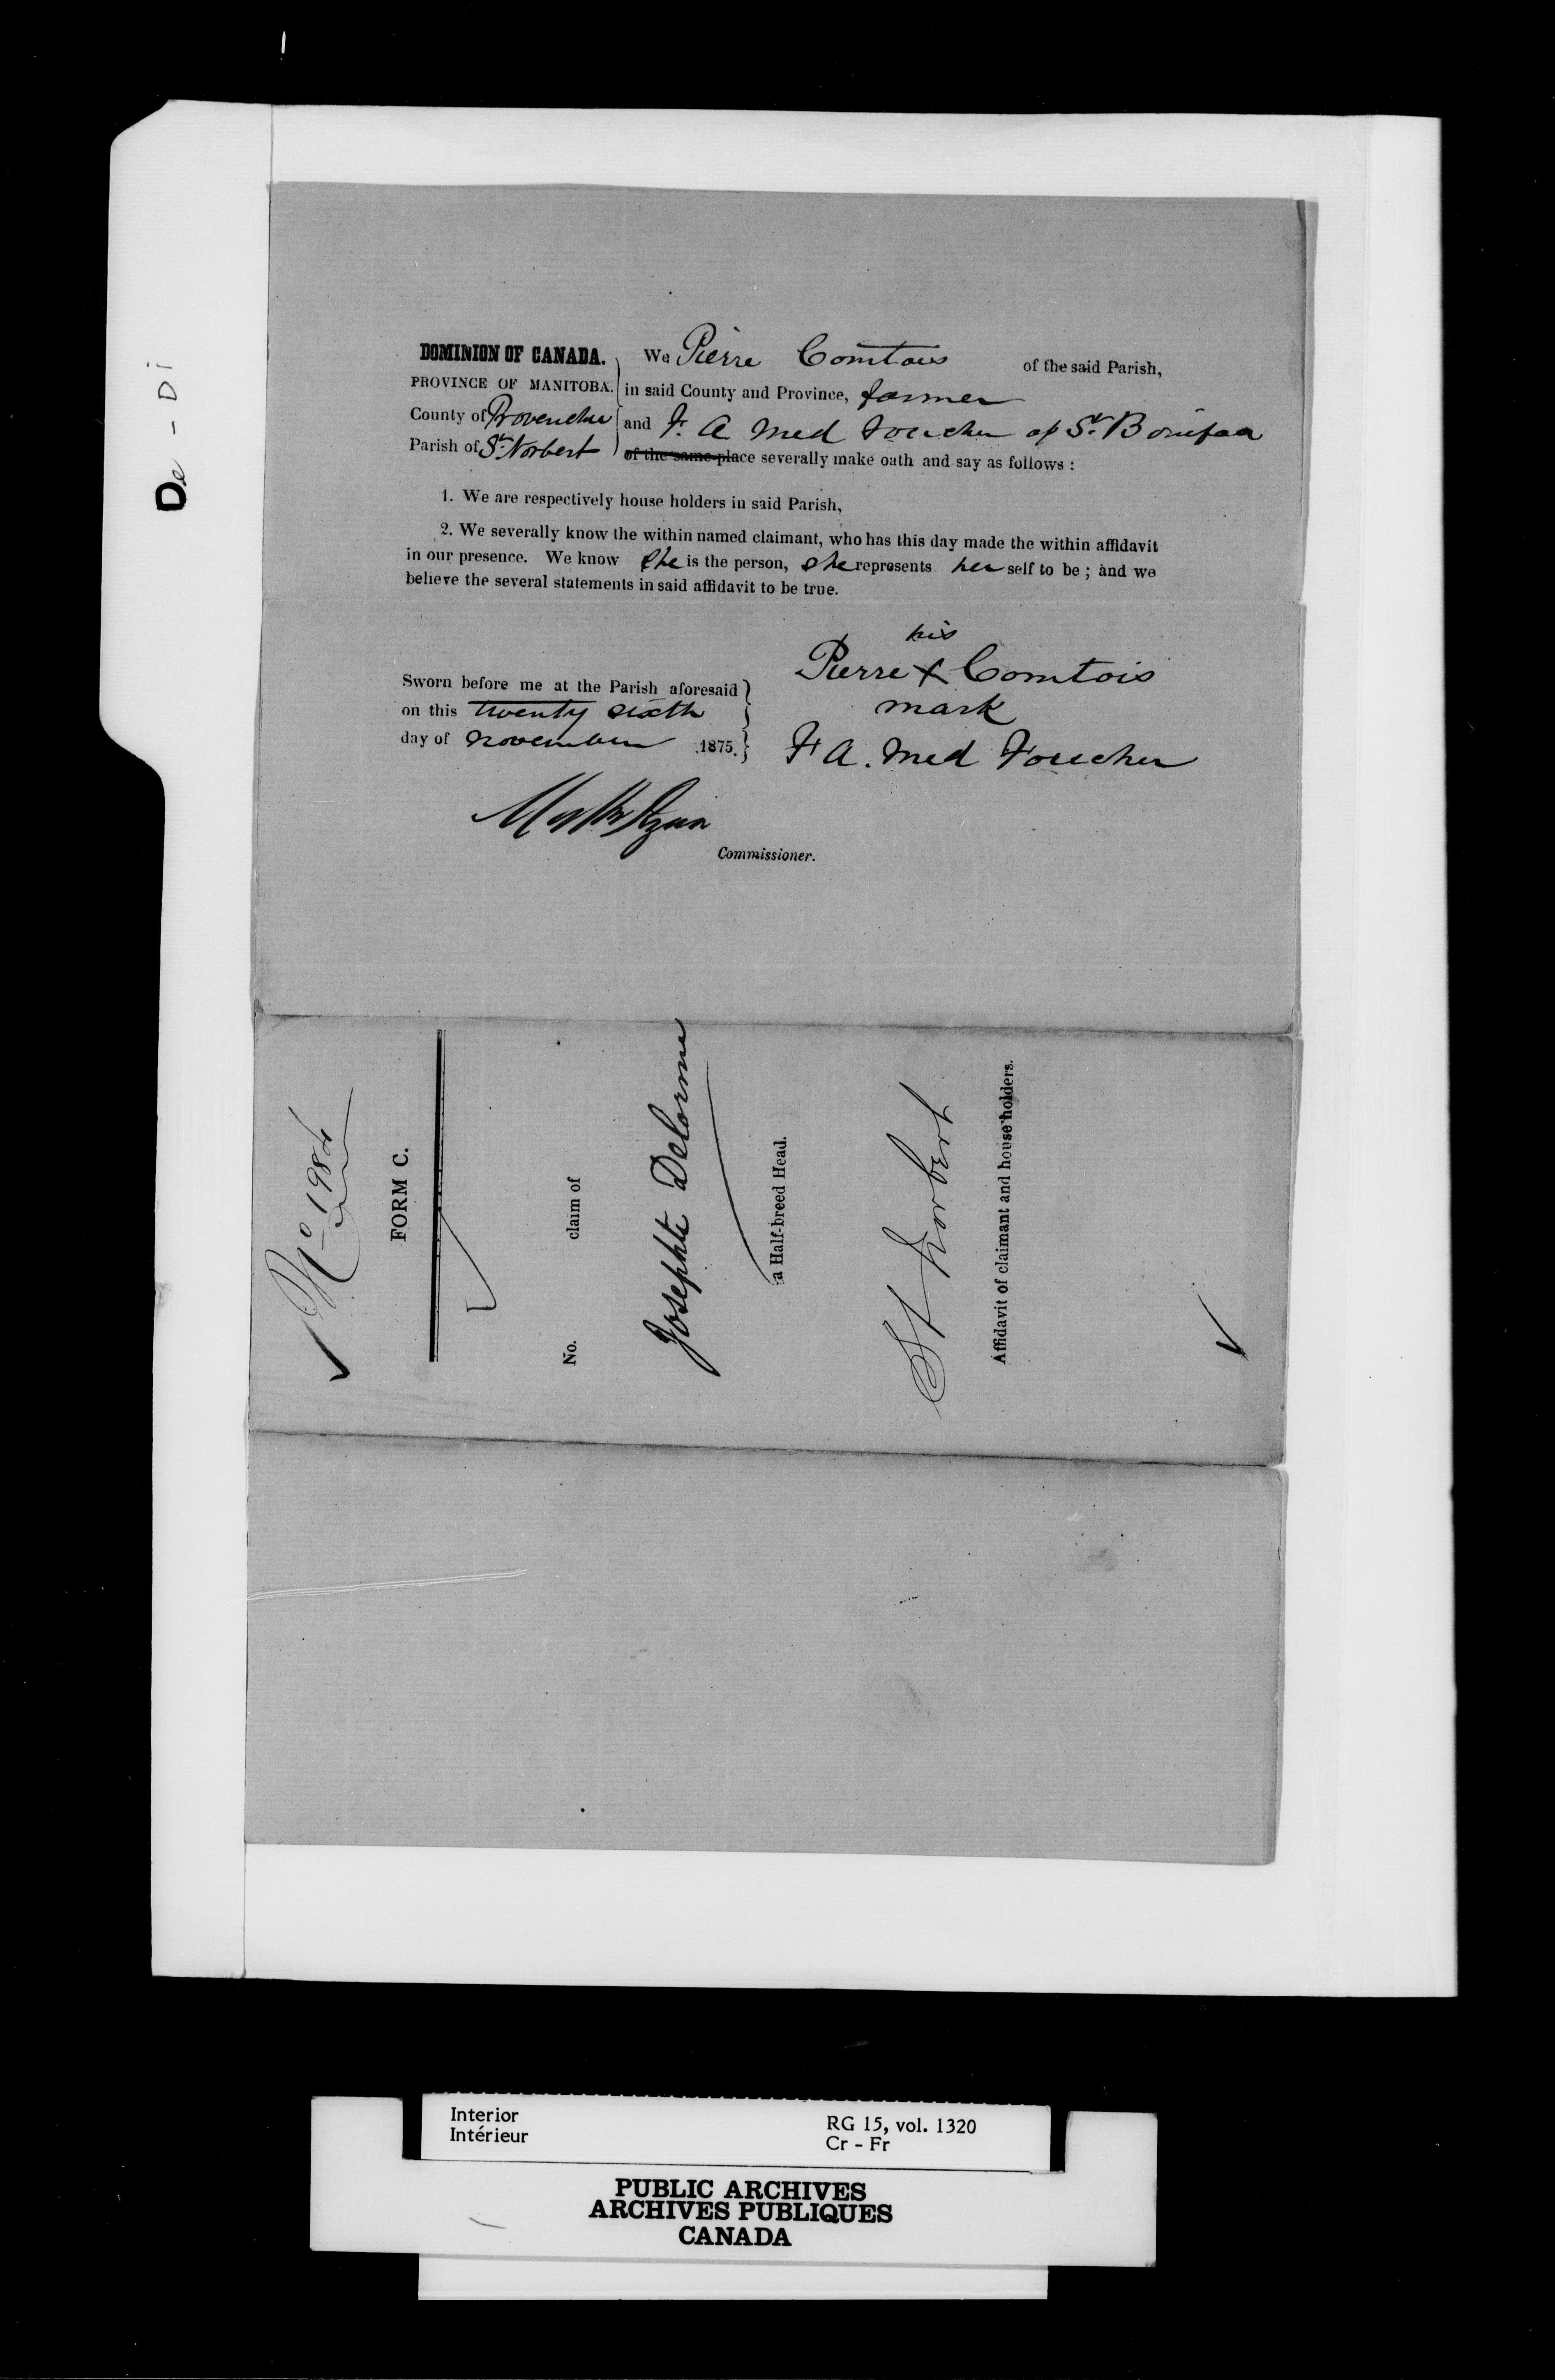 De - Di
DOMINION OF CANADA.
PROVINCE OF MANITOBA.
County of Provencher
Parish of St. Norbert
We Pierre Comtois of the said Parish,
in said County and Province, farmer
and F. A. Med Foucher of St. Boniface
of the same place severally make oath and say as follows :
1. We are respectively house holders in said Parish,
2. We severally know the within named claimant, who has this day made the within affidavit
in our presence. We know she is the person, she represents her self to be ; and we
believe the several statements in said affidavit to be true.
his
Pierre X Comtois
mark
F A. Med Foucher
Sworn before me at the Parish aforesaid
on this twenty sixth
day of november 1875.
Matt Ryan
Commissioner.
No 1984
FORM C.
No. claim of
Josephte Delorme
a Half-breed Head.
St Norbert
Affidavit of claimant and house holders.
Interior
Intérieur
RG 15, vol. 1320
Cr - Fr
PUBLIC ARCHIVES
ARCHIVES PUBLIQUES
CANADA